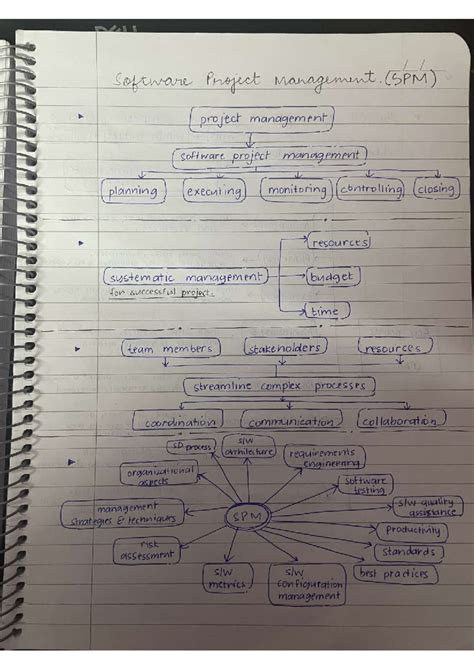 Software Project Management. (SPM)
project management
software project management
planning executing monitoring controlling closing
resources
systematic management budget
for successful project.
time
team members stakeholders resources
streamline complex processes
coordination communication collaboration
SD process
S/W architecture
requirements engineering
organizational aspects
software testing
S/W quality assistance
management strategies & techniques
SPM
productivity
risk assessment
standards
S/W metrics
S/W configuration management
best practices